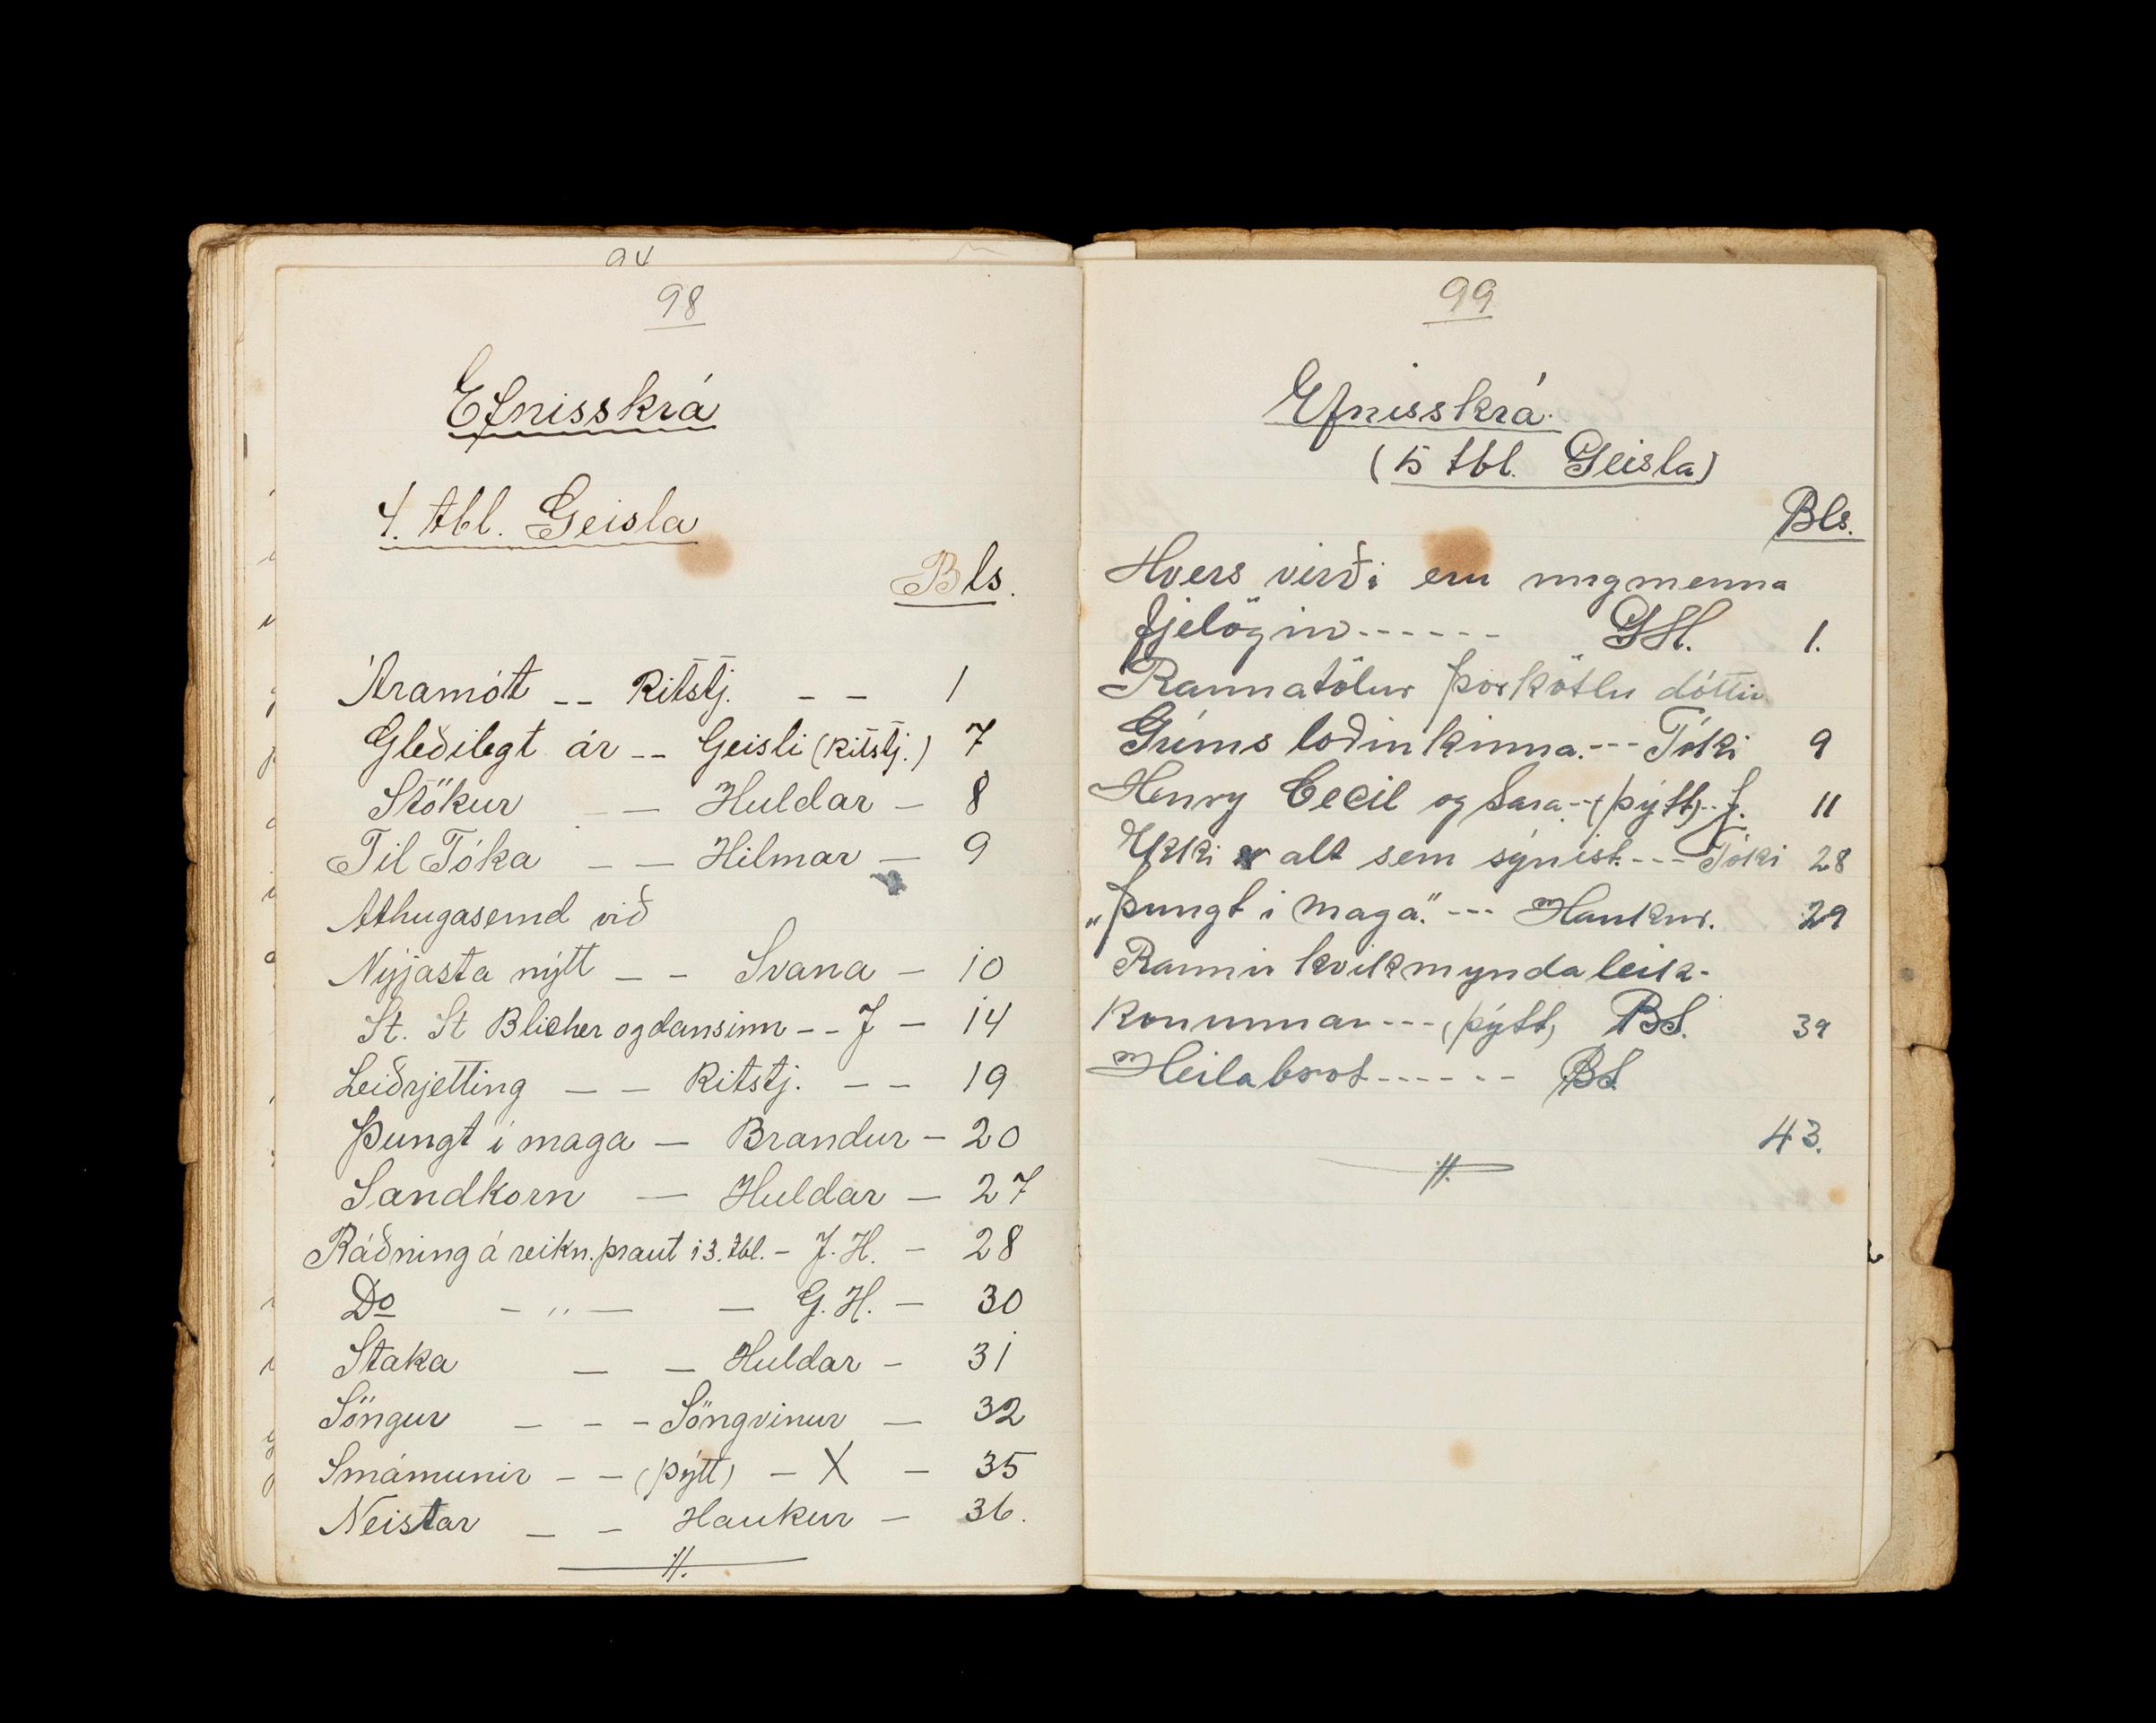 94
98
Efnisskrá
4. tbl. Geisla
Bls.
Áramótt -- Ritstj. -- 1
Gleðilegt ár -- Geisli (Ritstj.) 7
Stökur -- Huldar - 8
Til Tóka -- Hilmar - 9
Athugasemd við
Nyjasta nýtt -- Svana - 10
St. St Blicher og dansinn -- J - 14
Leiðrjetting -- Ritstj. -- 19
Þungt i maga - Brandur - 20
Sandkorn - Huldar - 27
Ráðning á reikn.þraut i 3. tbl. - J. H. - 28
Do - " - - G. H. - 30
Staka -- Huldar - 31
Söngur --- Söngvinur - 32
Smámunir -- (þýtt) - X - 35
Neistar -- Haukur - 36.
99
Efnisskrá.
(5 tbl. Geisla)
Bls.
Hvers virði eru ungmenna
fjelögin ------ GH. 1.
Raunatölur Þorkötlu dóttir
Gríms loðinkinna. --- Tóki 9
Henry Cecil og Sara -- (þýtt) -- J. 11
Ekki er alt sem sýnist --- Tóki 28
„Þungt i maga." --- Haukur. 29
Raunir kvikmyndaleik-
konunnar --- (þýtt) BS. 39
Heilabrot ------ BS
43.